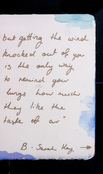 but getting the wind
knocked out of you
is the only way
to remind your
lungs how much
they like the
taste of air"
B - Sarah Kay